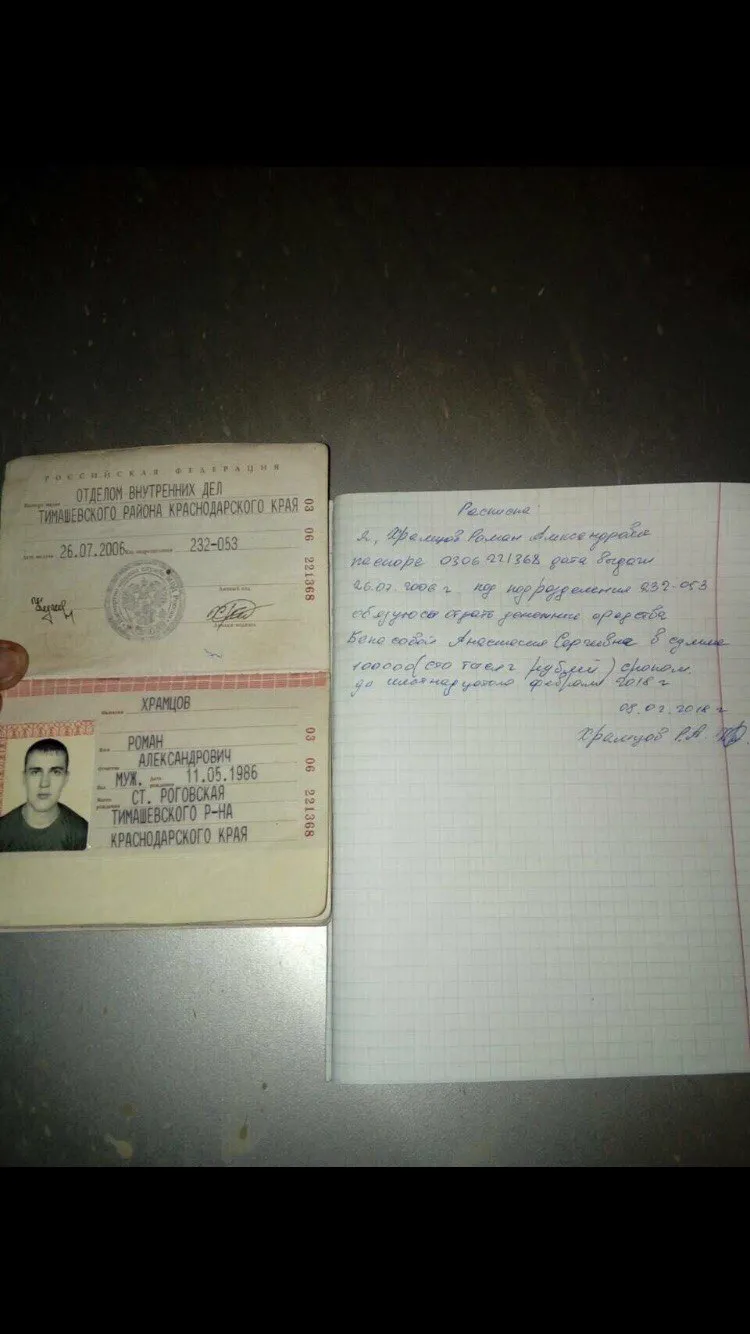 РОССИЙСКАЯ ФЕДЕРАЦИЯ
ОТДЕЛОМ ВНУТРЕННИХ ДЕЛ
ТИМАШЕВСКОГО РАЙОНА КРАСНОДАРСКОГО КРАЯ
26.07.2006 232-053
03 06 221368
ХРАМЦОВ
Имя РОМАН
Отчество АЛЕКСАНДРОВИЧ
Пол МУЖ. Дата рождения 11.05.1986
Место рождения СТ. РОГОВСКАЯ
ТИМАШЕВСКОГО Р-НА
КРАСНОДАРСКОГО КРАЯ
03 06 221368
Расписка.
Я, Храмцов Роман Александрович
0306 221368 дата выдачи
26.07.2006 г. код подразделения 232-053
обязуюсь отдать денежные средства
Анастасия Сергеевна в сумме
100000 (сто тысяч рублей) сроком
до шестнадцатого февраля 2018 г
08.02.2018 г
Храмцов Р.А.